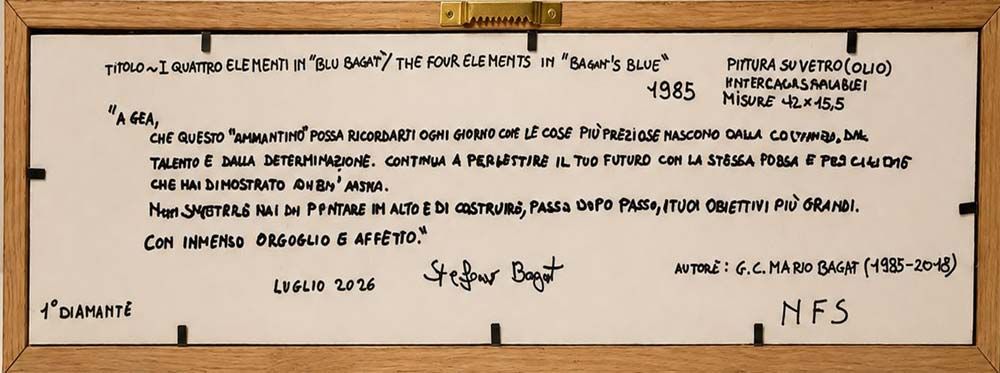 TITOLO ~ I QUATTRO ELEMENTI IN "BLU BAGAT"/ THE FOUR ELEMENTS IN "BAGAN'S BLUE"
1985
PITTURA SU VETRO (OLIO)
MISURE 42 x 15,5
"A GEA,
CHE QUESTO "AMMANTINO" POSSA RICORDARTI OGNI GIORNO CHE LE COSE PIÙ PREZIOSE NASCONO DALLA
TALENTO E DALLA DETERMINAZIONE. CONTINUA A IL TUO FUTURO CON LA STESSA E
CHE HAI DIMOSTRATO
IN ALTO E DI COSTRUIRE, PASSA DOPO PASSO, I TUOI OBIETTIVI PIÙ GRANDI.
CON INMENSO ORGOGLIO E AFFETTO."
LUGLIO 2026
Bagat
AUTORE: G.C. MARIO BAGAT (1985-2018)
1° DIAMANTE
NFS